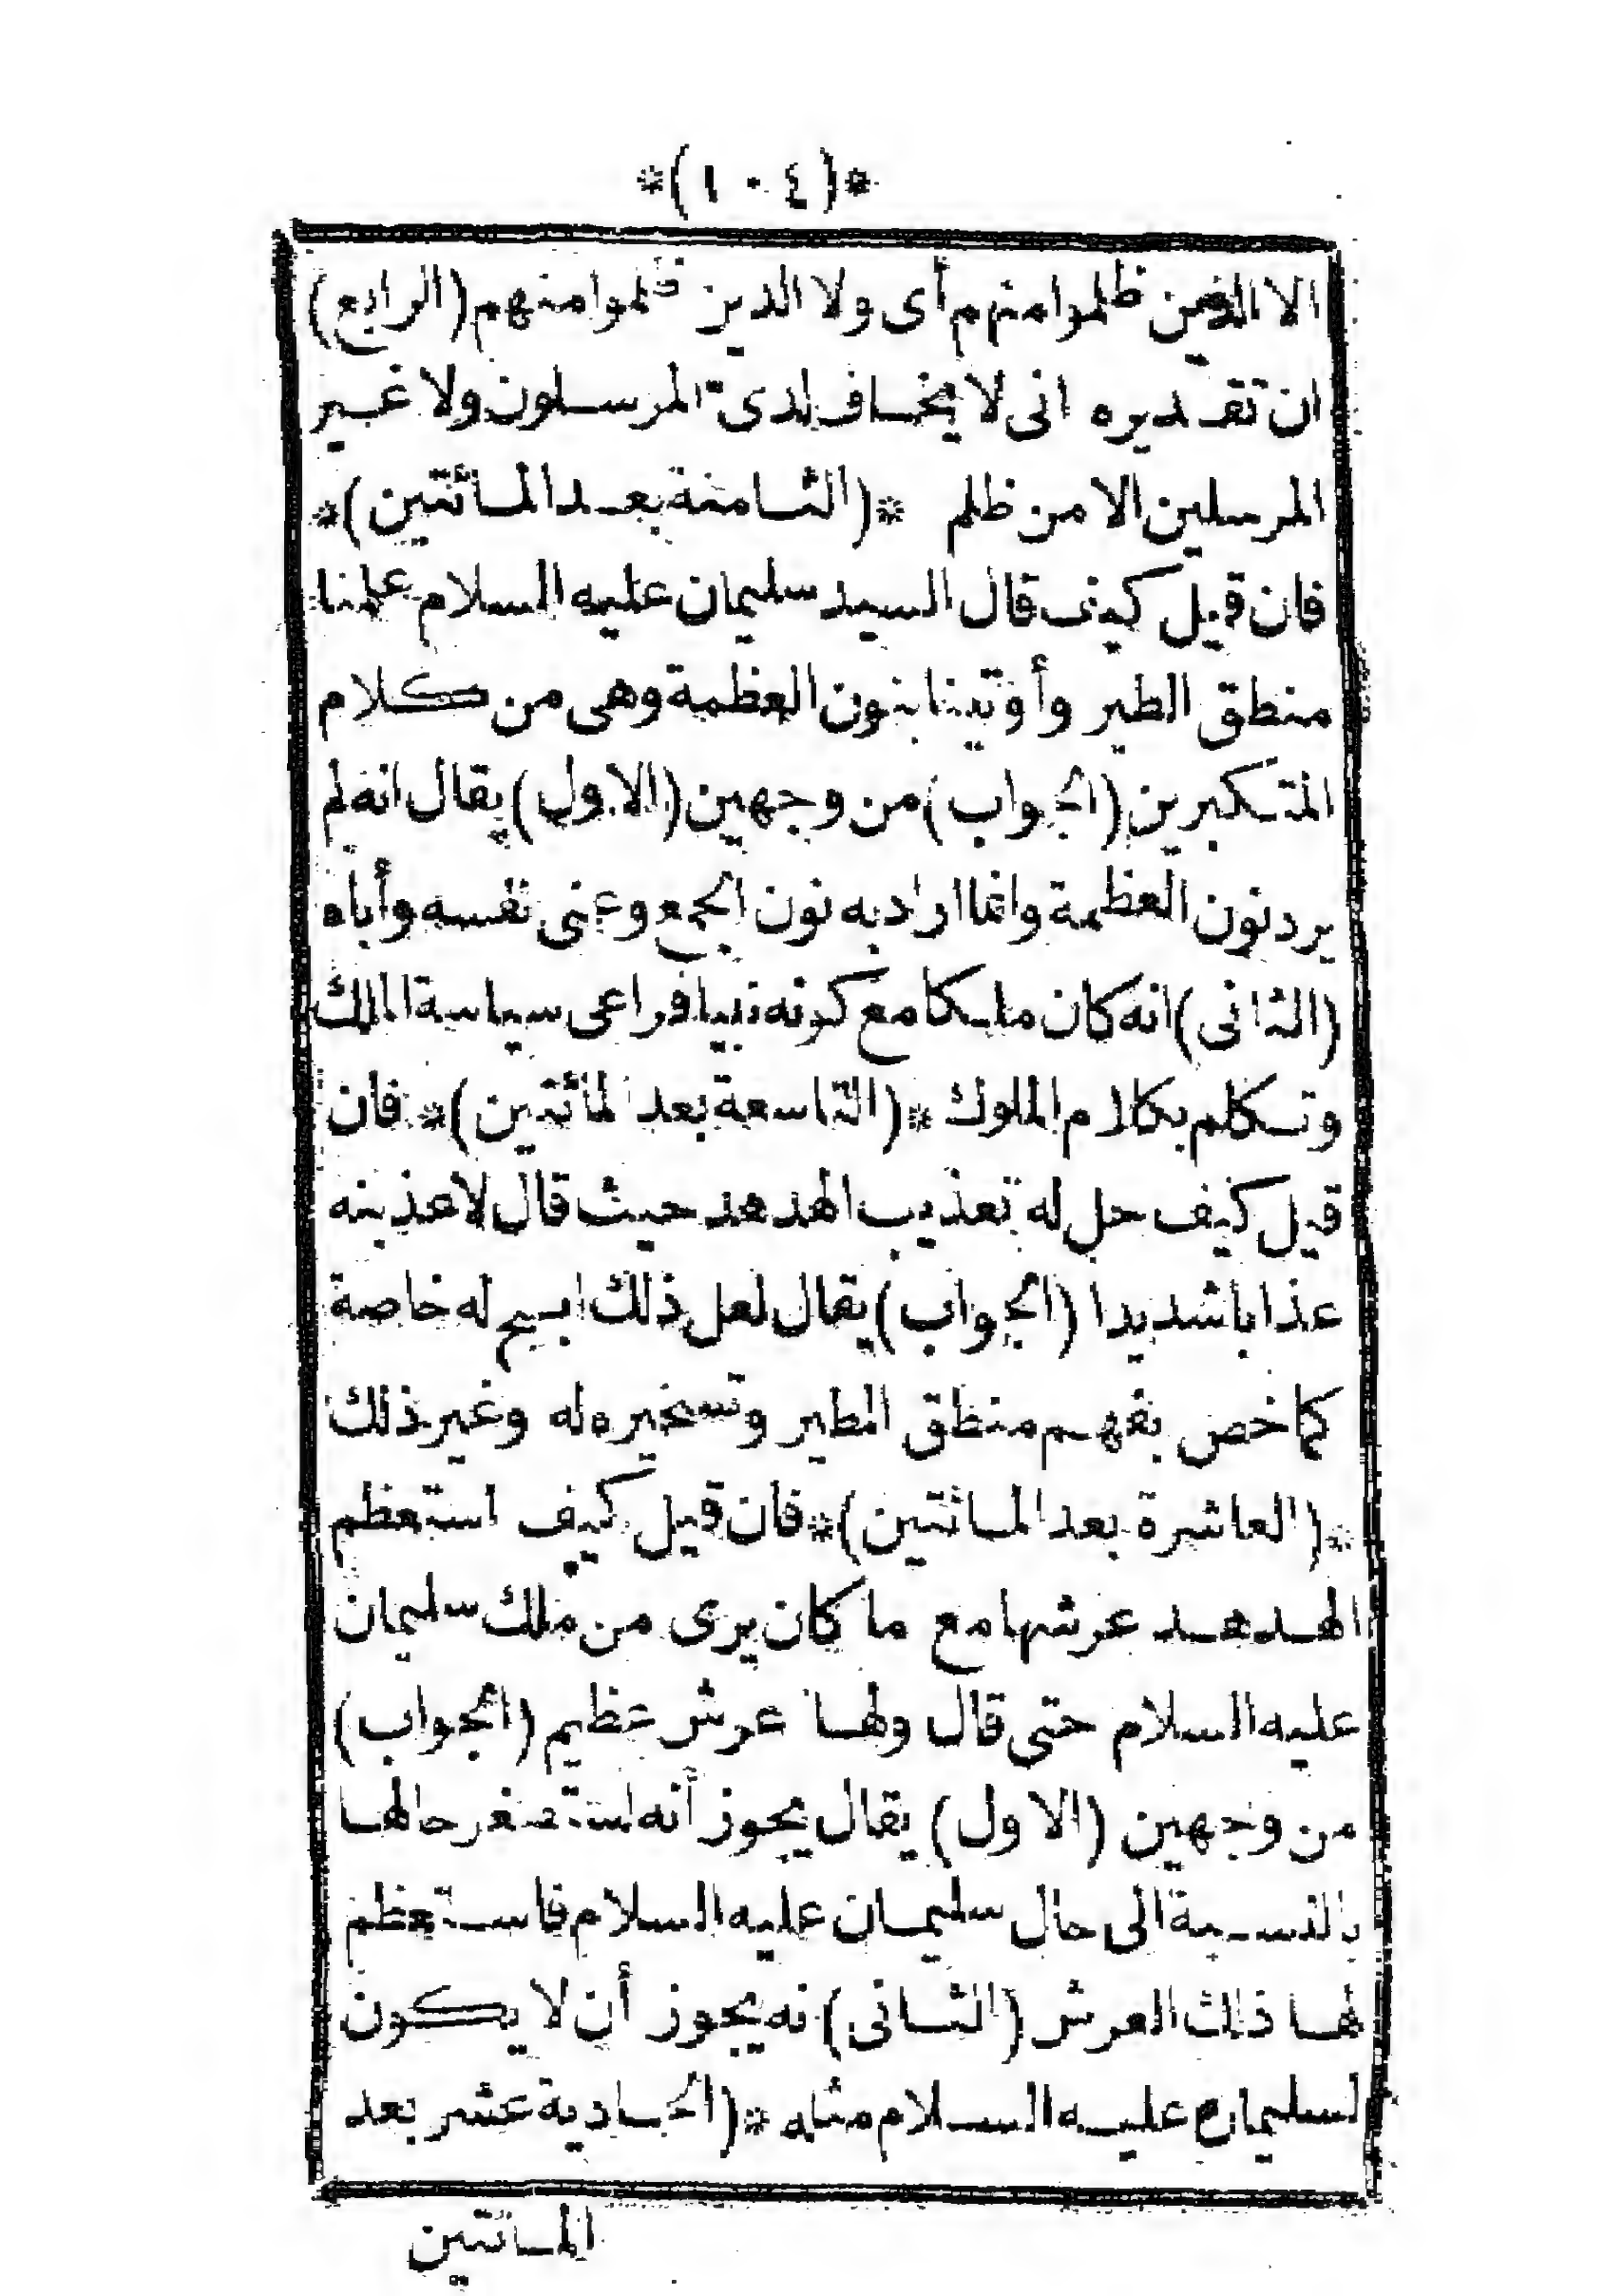 *(١٠٤)*
الا الذين ظلموا منهم أى ولا الذين ظلموا منهم (الرابع)
ان تقديره انى لا يخاف لدىّ المرسلون ولا غير
المرسلين الا من ظلم *(الثامنة بعد المائتين)*
فان قيل كيف قال السيد سليمان عليه السلام علمنا
منطق الطير وأوتينا بنون العظمة وهى من كلام
المتكبرين (الجواب) من وجهين (الاول) يقال انه لم
يرد نون العظمة وانما اراد به نون الجمع وعنى نفسه وأباه
(الثانى) انه كان ملكا مع كونه نبيا فراعى سياسة الملك
وتكلم بكلام الملوك *(التاسعة بعد المائتين)* فان
قيل كيف حل له تعذيب الهدهد حيث قال لاعذبنه
عذابا شديدا (الجواب) يقال لعل ذلك ابيح له خاصة
كما خص بفهم منطق الطير وتسخيره له وغير ذلك
*(العاشرة بعد المائتين)* فان قيل كيف استعظم
الهدهد عرشها مع ما كان يرى من ملك سليمان
عليه السلام حتى قال ولها عرش عظيم (الجواب)
من وجهين (الاول) يقال يجوز أنه استصغر حالها
بالنسبة الى حال سليمان عليه السلام فاستعظم
لها ذلك العرش (الثانى) انه يجوز أن لا يكون
لسليمان عليه السلام مثله *(الحادية عشر بعد
المائتين